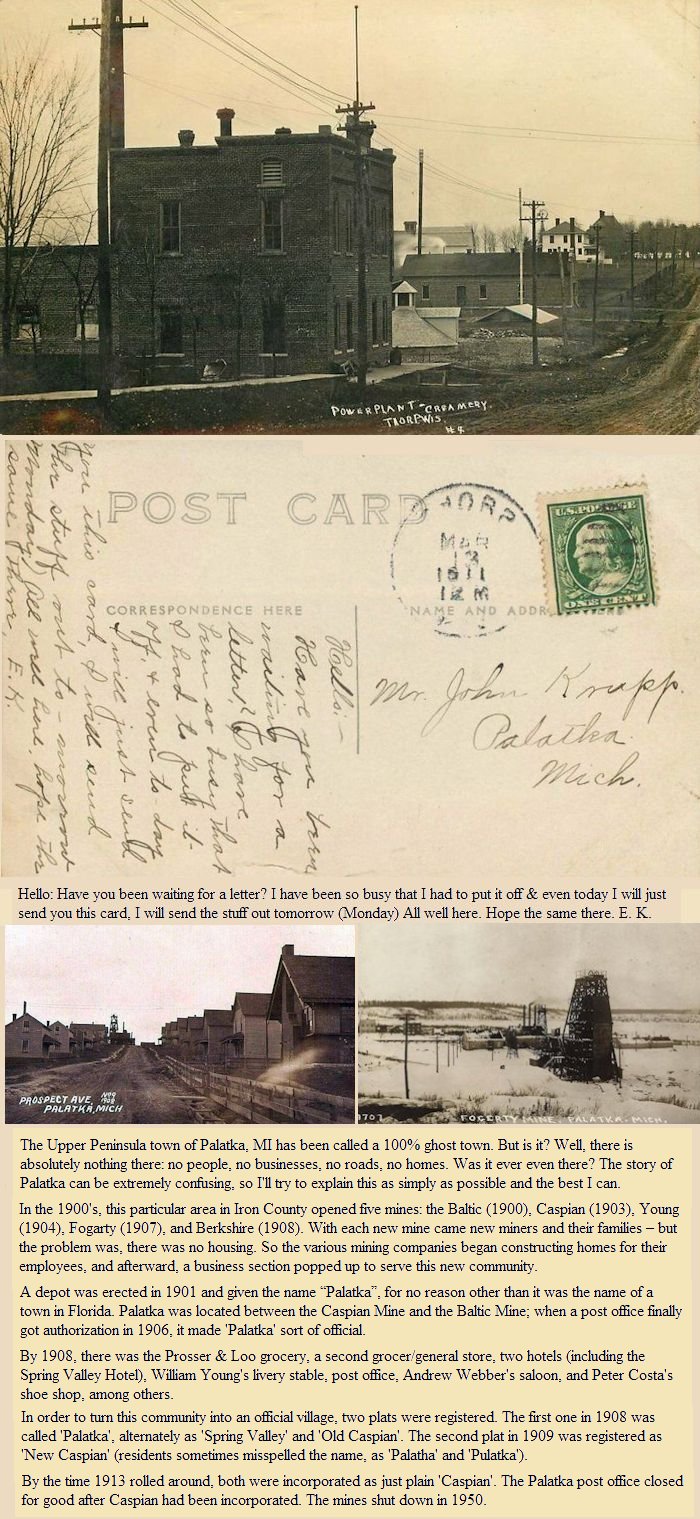 POWER PLANT - CREAMERY.
THORP WIS.
#4
POST CARD
THORP
MAR
1911
12 M
U.S. POSTAGE
ONE CENT
CORRESPONDENCE HERE
NAME AND ADDR
Mr. John Krupp.
Palatka
Mich.
Hello:-
Have you been
waiting for a
letter? I have
been so busy that
I had to put it
off, & even to-day
I will just send
you this card, I will send
the stuff out to-morrow
Monday, All well here. hope the
same there, E. K.
Hello: Have you been waiting for a letter? I have been so busy that I had to put it off & even today I will just
send you this card, I will send the stuff out tomorrow (Monday) All well here. Hope the same there. E. K.
PROSPECT AVE, No9
1908
PALATKA, MICH
1707
FOGERTY MINE, PALATKA - MICH.
The Upper Peninsula town of Palatka, MI has been called a 100% ghost town. But is it? Well, there is
absolutely nothing there: no people, no businesses, no roads, no homes. Was it ever even there? The story of
Palatka can be extremely confusing, so I'll try to explain this as simply as possible and the best I can.
In the 1900's, this particular area in Iron County opened five mines: the Baltic (1900), Caspian (1903), Young
(1904), Fogarty (1907), and Berkshire (1908). With each new mine came new miners and their families – but
the problem was, there was no housing. So the various mining companies began constructing homes for their
employees, and afterward, a business section popped up to serve this new community.
A depot was erected in 1901 and given the name “Palatka”, for no reason other than it was the name of a
town in Florida. Palatka was located between the Caspian Mine and the Baltic Mine; when a post office finally
got authorization in 1906, it made 'Palatka' sort of official.
By 1908, there was the Prosser & Loo grocery, a second grocer/general store, two hotels (including the
Spring Valley Hotel), William Young's livery stable, post office, Andrew Webber's saloon, and Peter Costa's
shoe shop, among others.
In order to turn this community into an official village, two plats were registered. The first one in 1908 was
called 'Palatka', alternately as 'Spring Valley' and 'Old Caspian'. The second plat in 1909 was registered as
'New Caspian' (residents sometimes misspelled the name, as 'Palatha' and 'Pulatka').
By the time 1913 rolled around, both were incorporated as just plain 'Caspian'. The Palatka post office closed
for good after Caspian had been incorporated. The mines shut down in 1950.